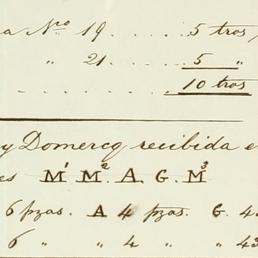 a Nro 19 . . . . . 5 tros
" 21 . . . . 5 "
. . . . . . . 10 tros
y Domercq recibida e
es M1 M2. A. G. M3
6 pzas. A 4 pzas. G. 4
6 " " 4 " " 43